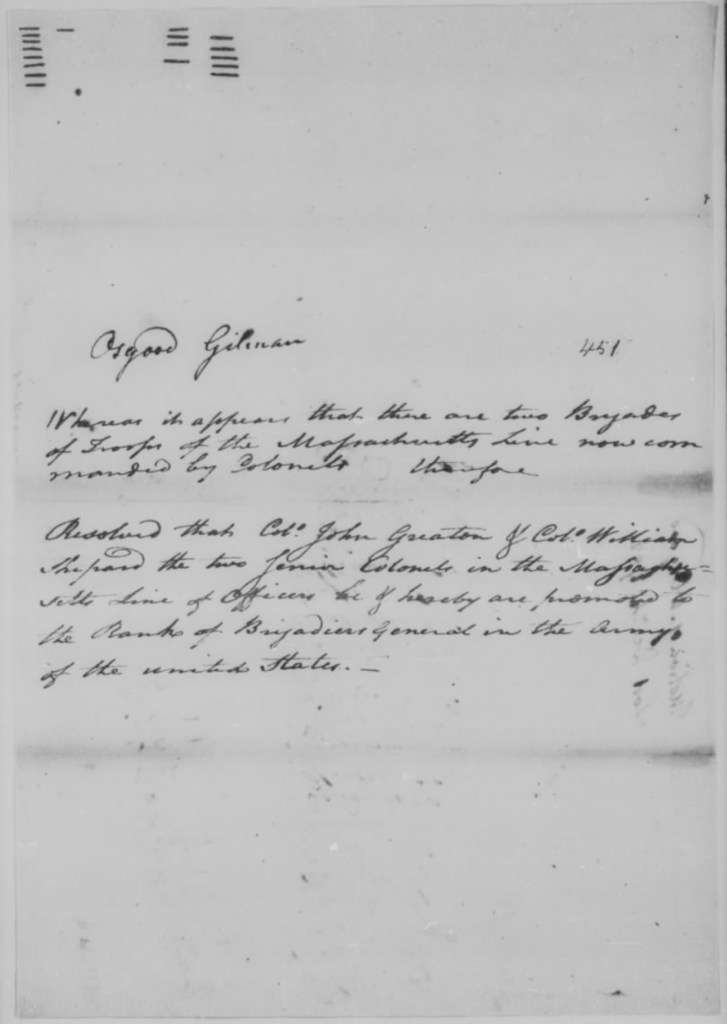 Osgood Gilman 451
Whereas it appears that there are two Brigades
of Troops of the Massachusetts Line now com
manded by Colonels therefore
Resolved that Colo. John Greaton & Colo. William
Shepard the two Senior Colonels in the Massachu-
setts Line of Officers be & hereby are promoted to
the Rank of Brigadiers General in the Army
of the united States. —